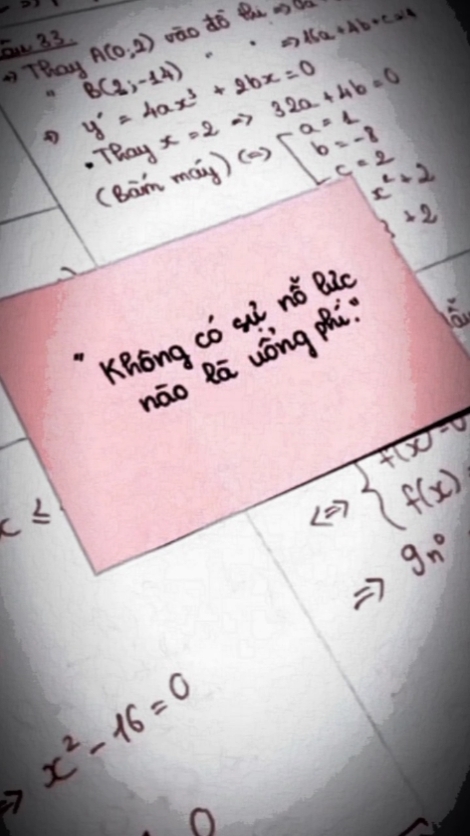 Câu 33.
=> Thay A(0;2) vào đồ thị =>
" B(2;-14) " " => 16a+4b+c=-14
=> y' = 4ax³ + 2bx = 0
• Thay x = 2 => 32a + 4b = 0
(Bấm máy) <=>
a = 1
b = -8
c = 2
x² + 2
+ 2
" Không có sự nỗ lực
nào là uổng phí."
x ≤
<=>
f(x)
=> 9n⁰
=> x² - 16 = 0
0